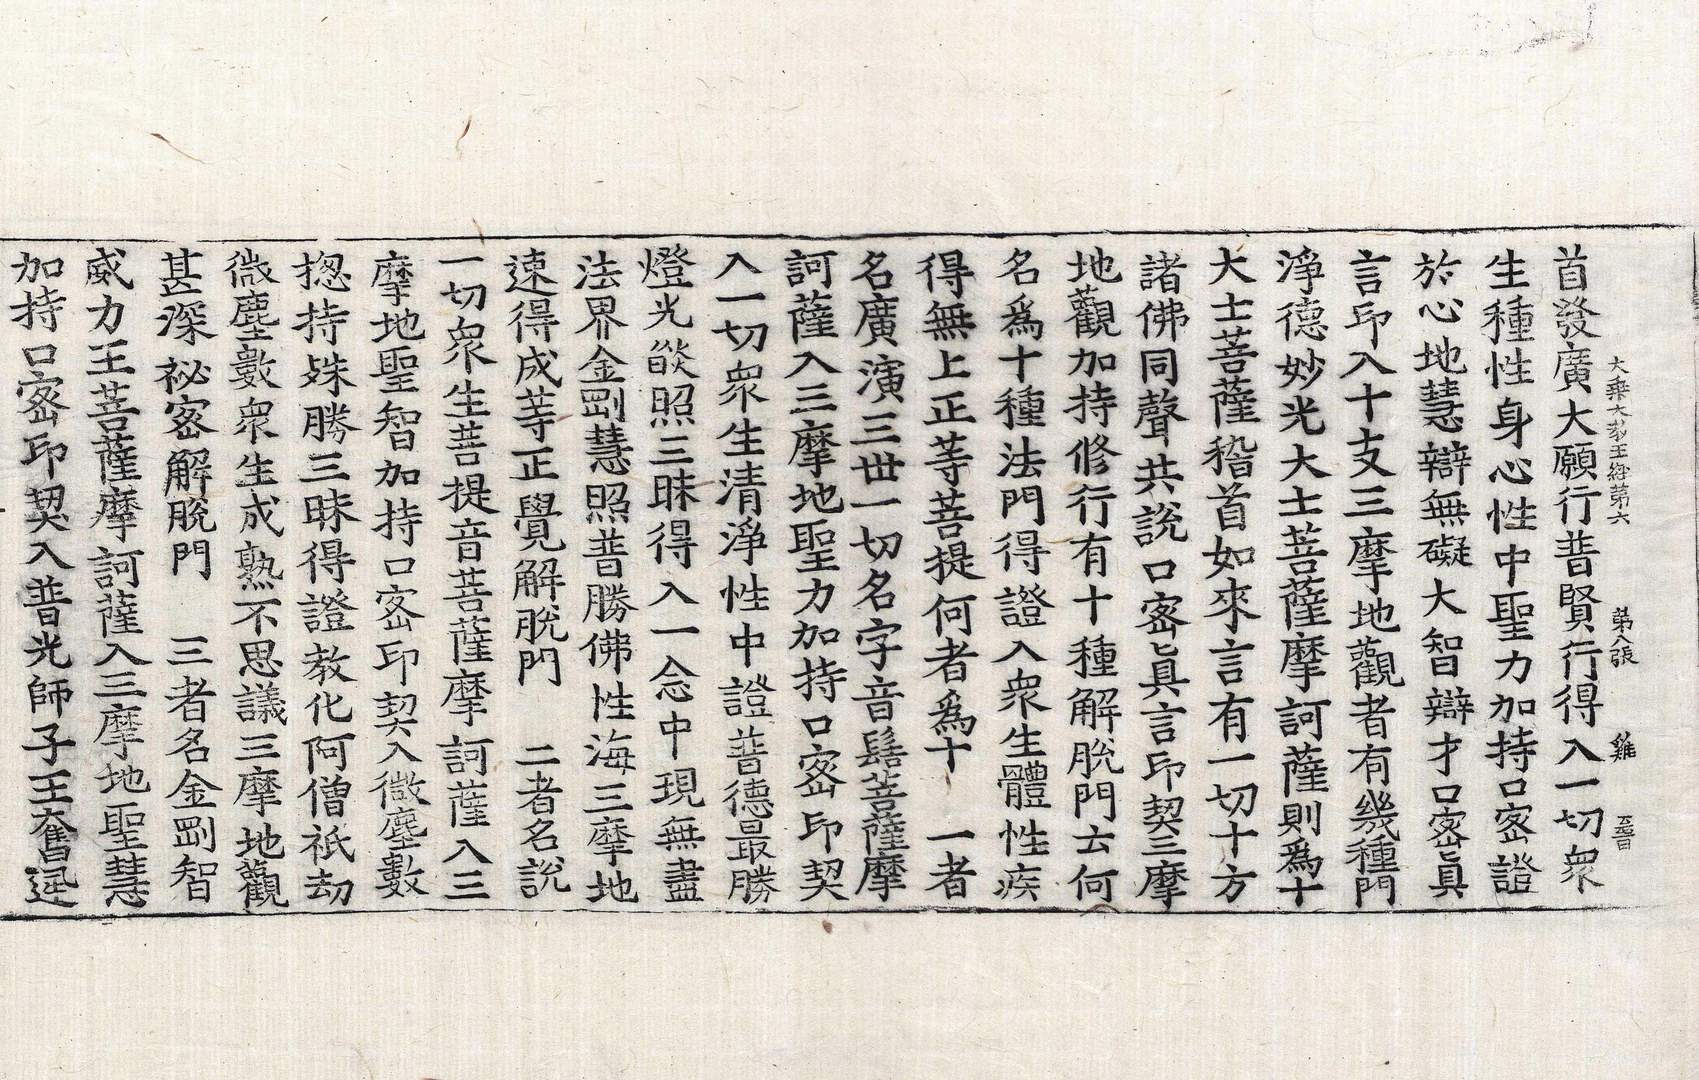 大乘大教王経第六 第八張 雞
首發廣大願行普賢行得入一切衆
生種性身心性中聖力加持口宻證
於心地慧辯無礙大智辯才口宻真
言印入十支三摩地觀者有幾種門
淨德妙光大士菩薩摩訶薩則爲十
大士菩薩稽首如來言有一切十方
諸佛同聲共說口宻真言印契三摩
地觀加持修行有十種解脫門云何
名爲十種法門得證入衆生體性疾
得無上正等菩提何者爲十 一者
名廣演三世一切名字音髻菩薩摩
訶薩入三摩地聖力加持口宻印契
入一切衆生清淨性中證普德最勝
燈光燄照三昧得入一念中現無盡
法界金剛慧照普勝佛性海三摩地
速得成等正覺解脫門 二者名說
一切衆生菩提音菩薩摩訶薩入三
摩地聖智加持口宻印契入微塵數
揔持殊勝三昧得證教化阿僧祇刧
微塵數衆生成熟不思議三摩地觀
甚深祕宻解脫門 三者名金剛智
威力王菩薩摩訶薩入三摩地聖慧
加持口宻印契入普光師子王奮迅